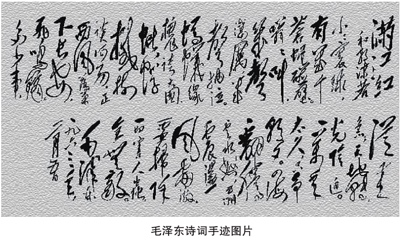 满江红
和郭沫若
小小寰球
有几个
苍蝇碰壁
嗡嗡叫
几声
凄厉几
声抽泣
蚂蚁缘
槐夸大国
蚍蜉
撼树
谈何易正
西风落叶
下长安
飞鸣镝
多少事
从来
急天地转
光阴迫
一万年
太久只争
朝夕四海
翻腾
云水怒五洲
震荡
风雷激
要扫除
一切害人虫
全无敌
毛泽东
一九六三年
毛泽东诗词手迹图片